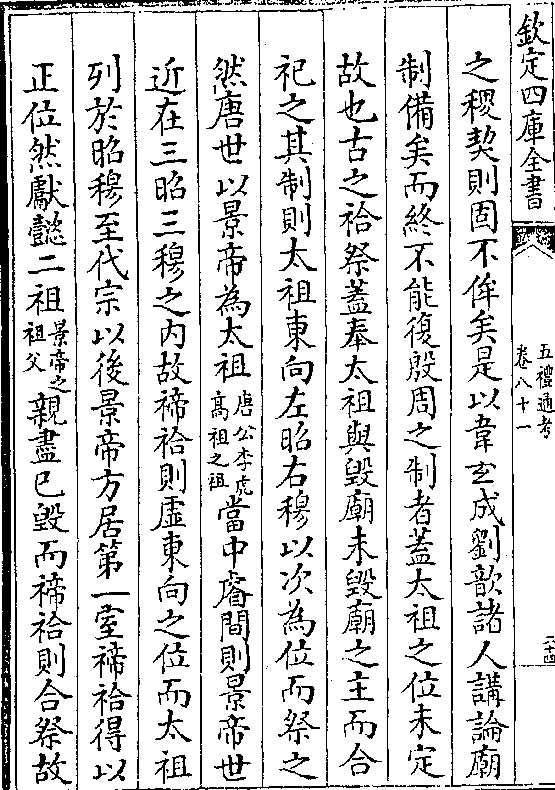 欽定四庫全書
五禮通考
卷八十一
二十四
之稷契則固不侔矣是以韋𤣥成劉歆諸人講論廟
制備矣而終不能復殷周之制者蓋太祖之位未定
故也古之祫祭蓋奉太祖與毀廟未毀廟之主而合
祀之其制則太祖東向左昭右穆以次為位而祭之
然唐世以景帝為太祖唐公李虎高祖之祖當中睿間則景帝世
近在三昭三穆之内故禘祫則虛東向之位而太祖
列於昭穆至代宗以後景帝方居第一室禘祫得以
正位然獻懿二祖景帝之祖父親盡已毀而禘祫則合祭故